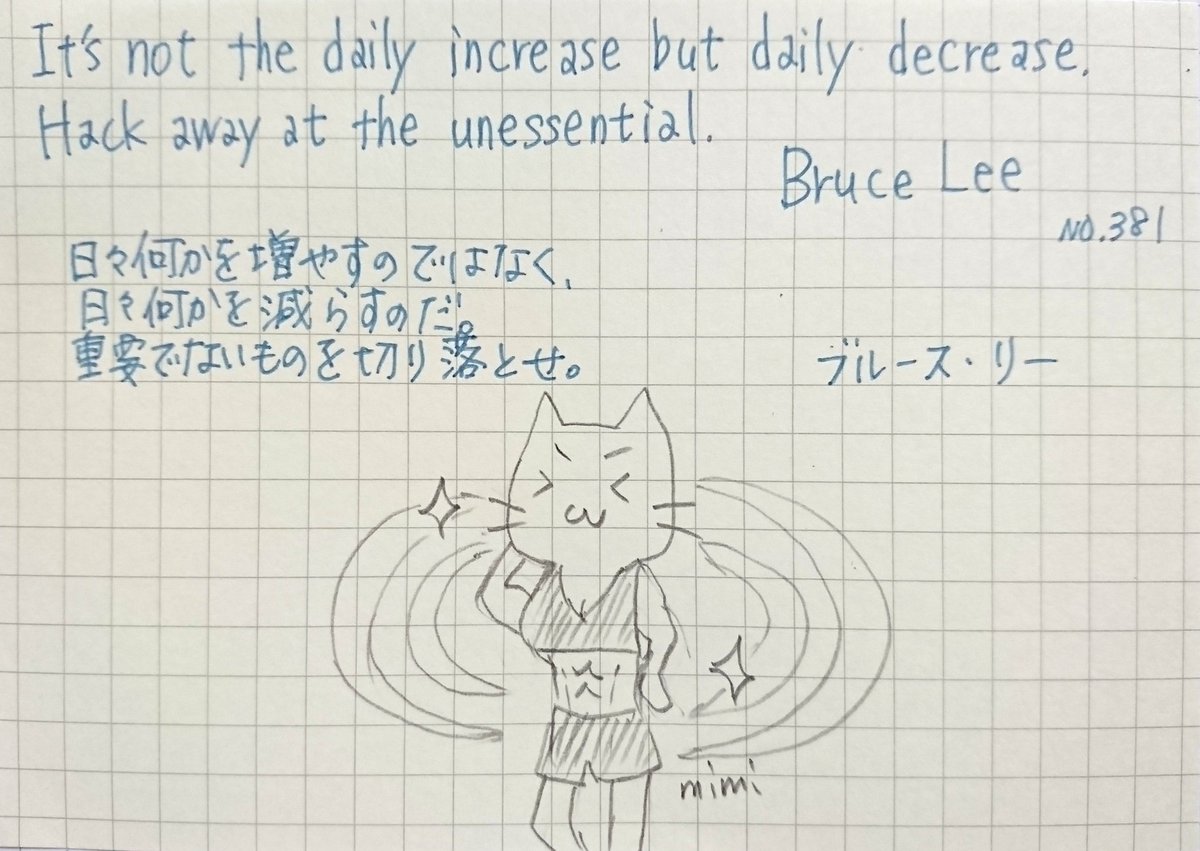 It's not the daily increase but daily decrease.
Hack away at the unessential.
Bruce Lee
NO.381
日々何かを増やすのではなく、
日々何かを減らすのだ。
重要でないものを切り落とせ。
ブルース・リー
mimi